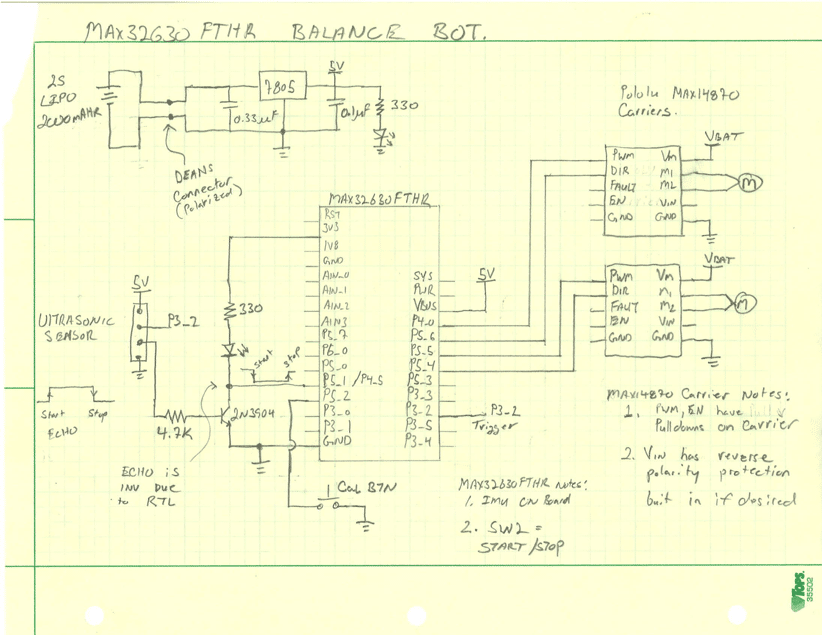 MAX32630 FTHR BALANCE BOT.
2S
LIPO
2000mAHR
7805
5V
0.33µF
0.1µF
330
DEANS
Connector
(Polarized)
Pololu MAX14870
Carriers.
VBAT
PWM Vm
DIR M1
FAULT M2
EN VIN
GND GND
M
VBAT
PWM Vm
DIR M1
FAULT M2
EN VIN
GND GND
M
MAX32630FTHR
RST
3V3
1V8
GND
AIN_0
AIN_1
AIN_2
AIN3
P5_7
P6_0
P5_0
P5_1 /P4_5
P5_2
P3_0
P3_1
GND
SYS
PWR
VBUS
P4_0
P5_6
P5_5
P5_4
P5_3
P3_3
P3_2
P3_5
P3_4
5V
P3_2
Trigger
5V
ULTRASONIC
SENSOR
P3_2
330
Start
Stop
Start Stop
ECHO
4.7K
2N3904
ECHO is
INV DUE
to RTL
Cal BTN
MAX32630FTHR Notes:
1. IMU ON Board
2. SW2 =
START/STOP
MAX14870 Carrier Notes:
1. PWM, EN have
Pulldowns on Carrier
2. VIN has reverse
polarity protection
buit in if desired
TOPS
35502